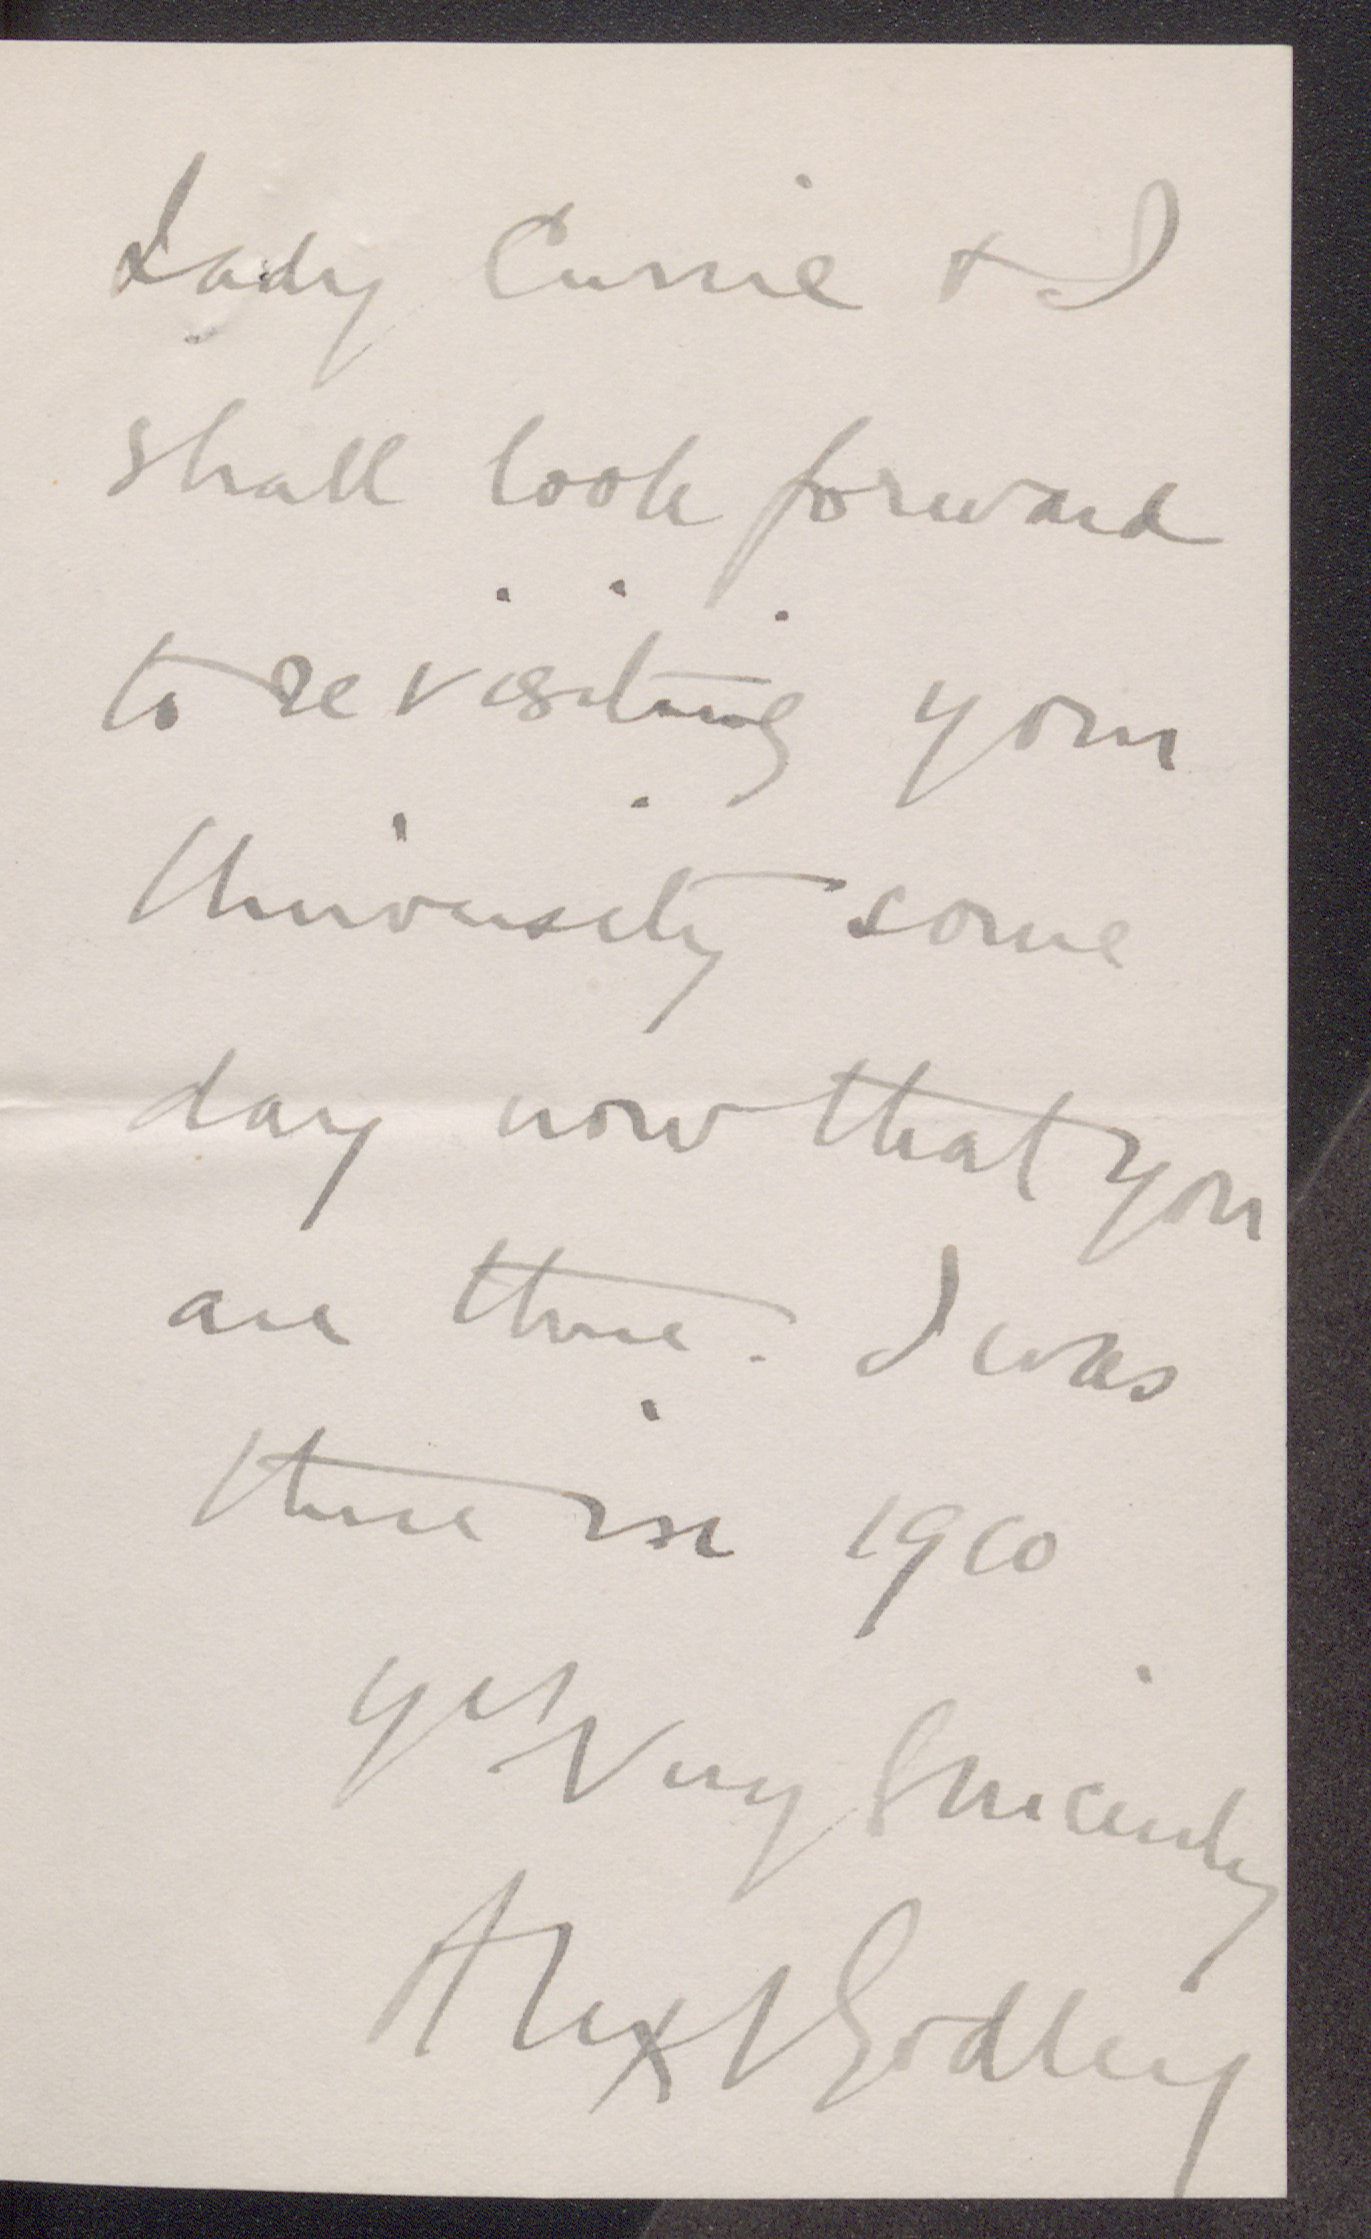 Lady Currie & I
shall look forward
to revisiting your
University some
day now that you
are there. I was
there in 1910
yrs Very Sincerely
Alex Godley